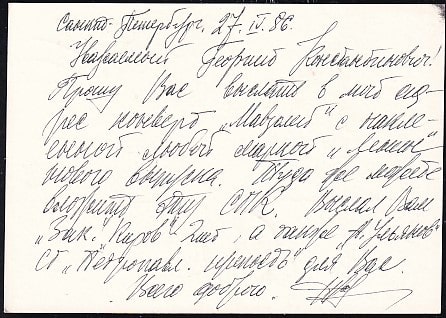 Санкт-Петербург. 27.IV.86.
Уважаемый Георгий Константинович!
Прошу Вас выслать в мой ад-
рес конверт „Мавзолей" с накле-
енной любой маркой „Ленин"
нового выпуска. Туда же можете
вложить эту СПК. Выслал Вам
„Бак.", „Киров"-2шт, а также „А. Ульянов"
СГ „Петропавл. крепость" для Вас.
Всего доброго.